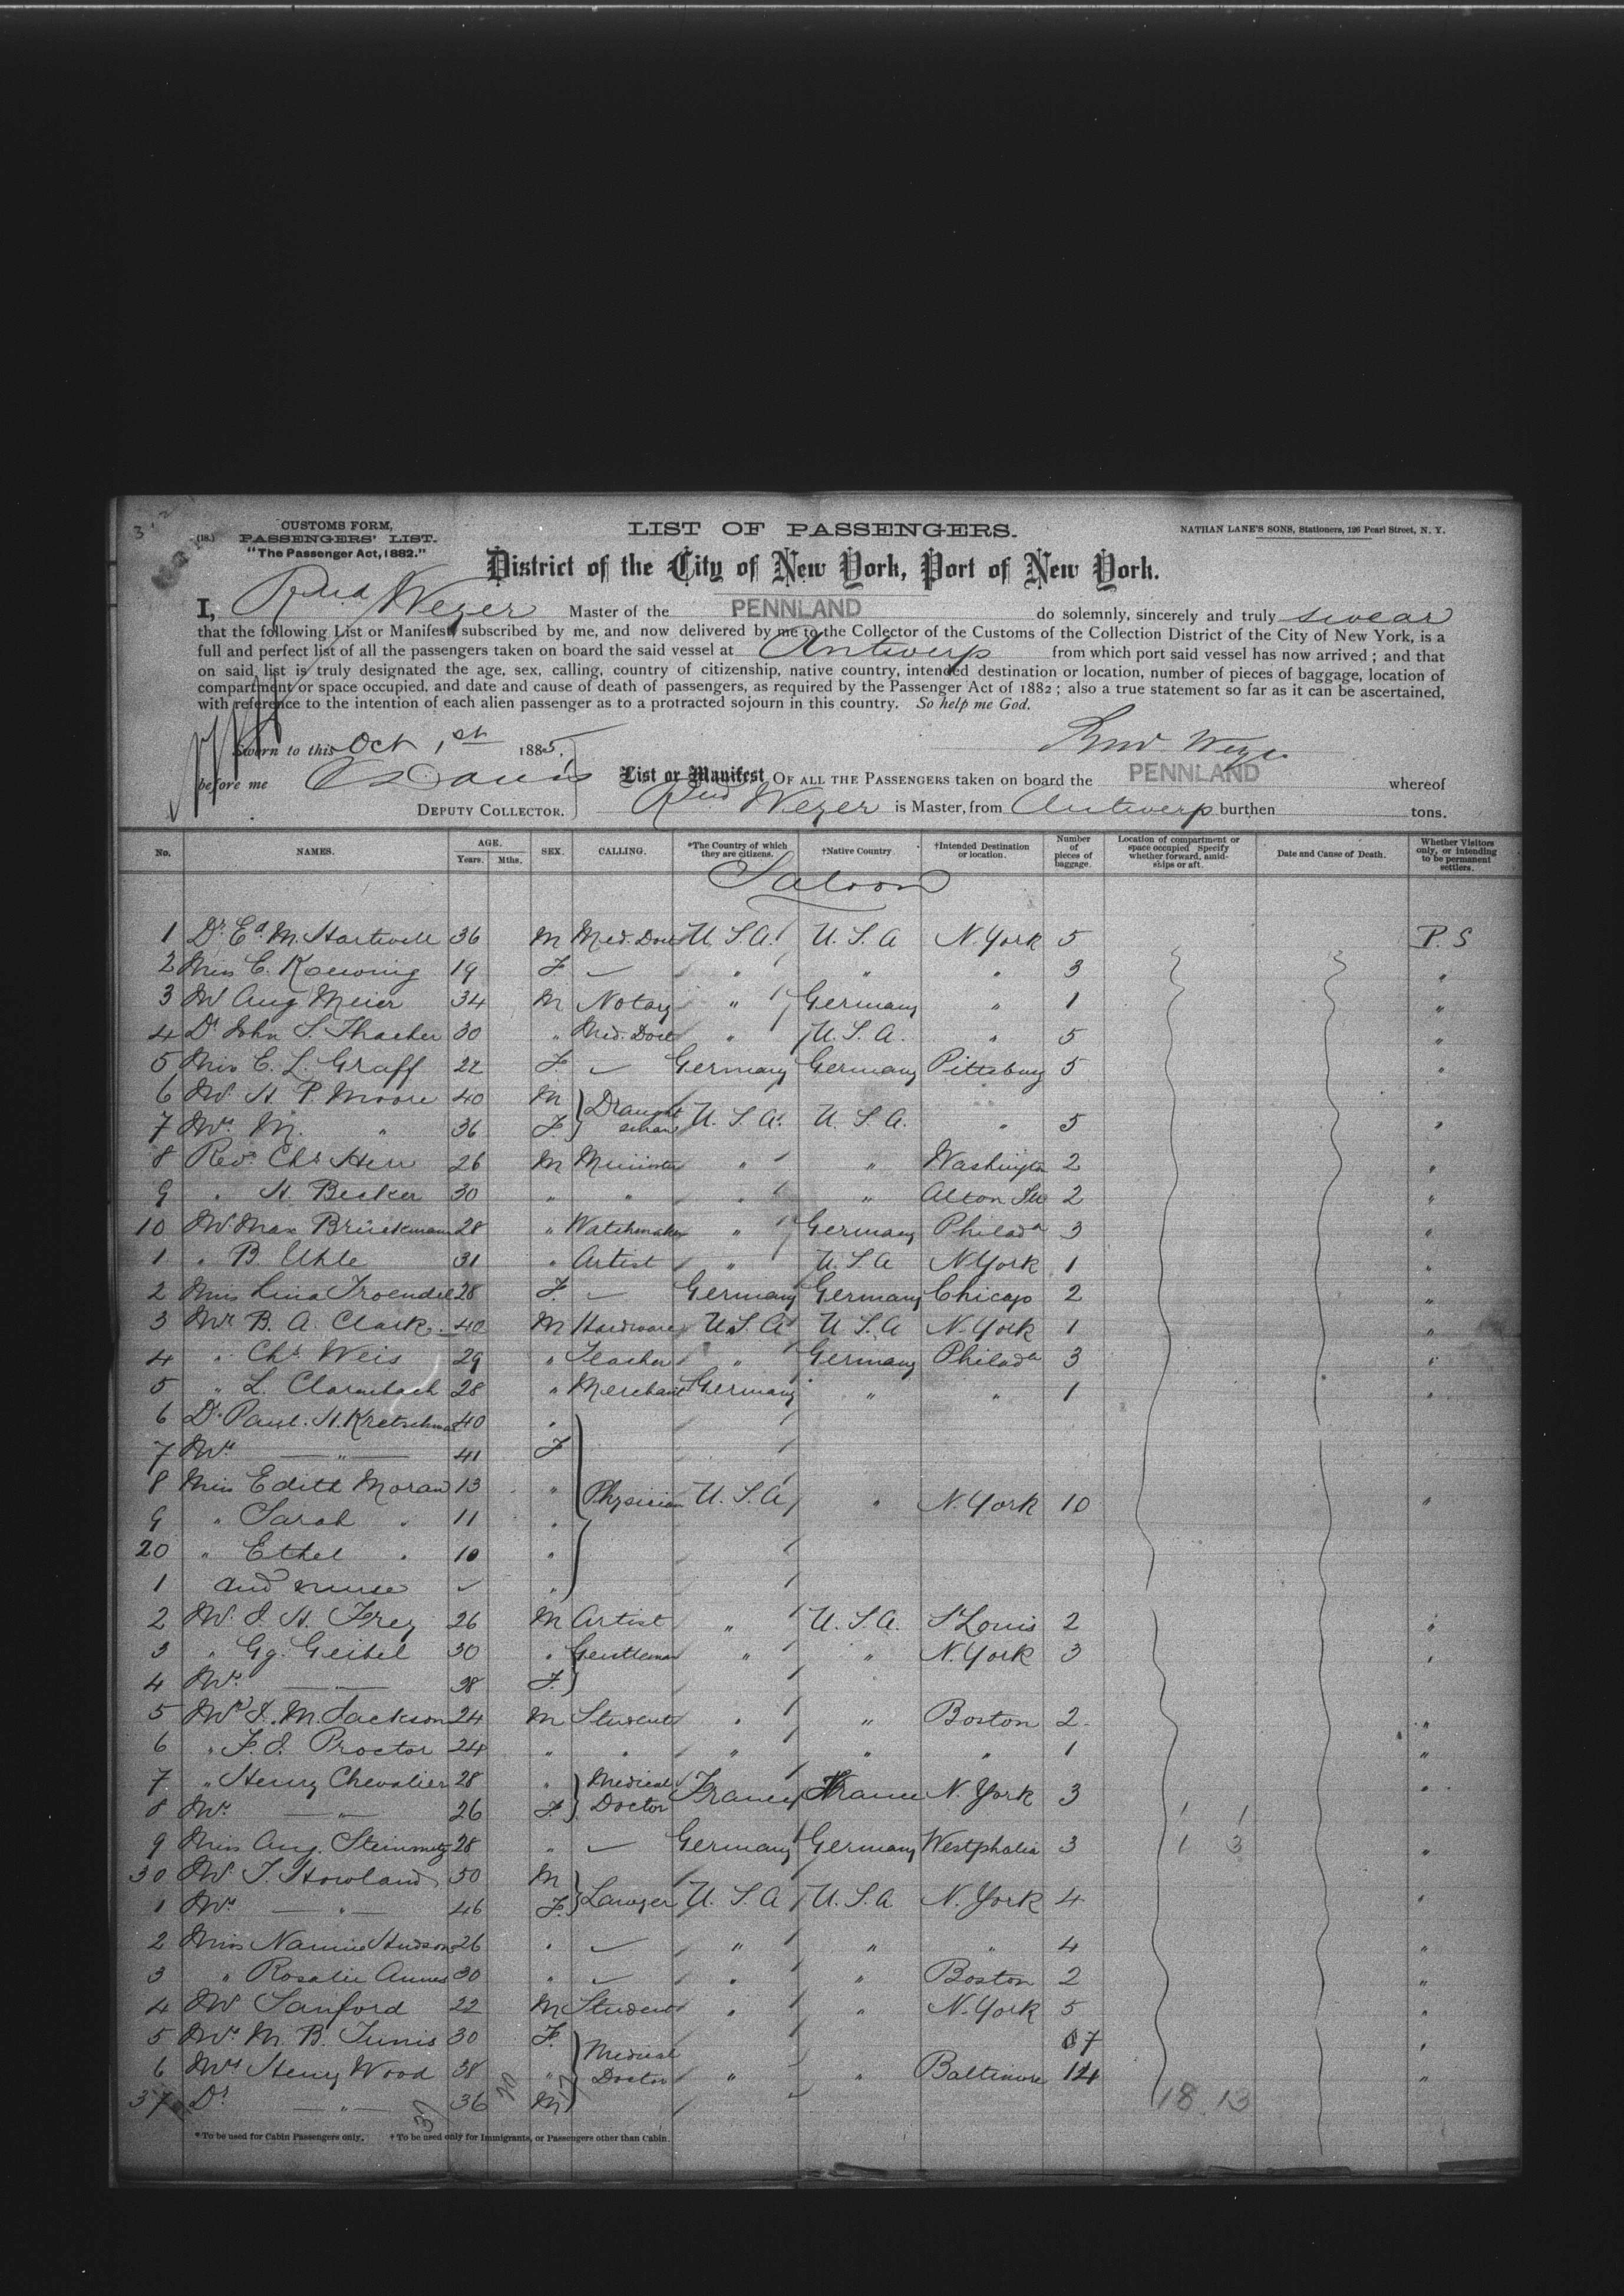 CUSTOMS FORM,
(18.) PASSENGERS' LIST.
"The Passenger Act, 1882."
LIST OF PASSENGERS.
NATHAN LANE'S SONS, Stationers, 126 Pearl Street, N. Y.
District of the City of New York, Port of New York.
I, Rud Weyer Master of the PENNLAND do solemnly, sincerely and truly swear
that the following List or Manifest, subscribed by me, and now delivered by me to the Collector of the Customs of the Collection District of the City of New York, is a
full and perfect list of all the passengers taken on board the said vessel at Antwerp from which port said vessel has now arrived; and that
on said list is truly designated the age, sex, calling, country of citizenship, native country, intended destination or location, number of pieces of baggage, location of
compartment or space occupied, and date and cause of death of passengers, as required by the Passenger Act of 1882; also a true statement so far as it can be ascertained,
with reference to the intention of each alien passenger as to a protracted sojourn in this country. So help me God.
Sworn to this Oct 1st 1885.
Rud Weyer
before me Davis
List or Manifest OF ALL THE PASSENGERS taken on board the PENNLAND whereof
DEPUTY COLLECTOR.
Rud Weyer is Master, from Antwerp burthen tons.
No. NAMES. AGE. Years. Mths. SEX. CALLING. *The Country of which they are citizens. †Native Country. †Intended Destination or location. Number of pieces of baggage. Location of compartment or space occupied Specify whether forward, amidships or aft. Date and Cause of Death. Whether Visitors only, or intending to be permanent settlers.
Saloon
1 Dr. Ed. M. Hartwell 36 M Med. Doct U.S.A. U.S.A N. York 5 P. S
2 Miss C. Koewing 19 F " " " 3 "
3 Mr Aug Meier 34 M Notary " Germany " 1 "
4 Dr John S. Thacher 30 " Med. Doct " U.S.A. " 5 "
5 Miss C. L. Graff 22 F Germany Germany Pittsburg 5 "
6 Mr. H. P. Moore 40 M Draughtsman U.S.A. U.S.A.
7 Mrs. M. " 36 F. " 5 "
8 Revd. Chs. Herr 26 M Minister " " Washington 2 "
9 " H. Becker 30 " " " " Alton Ill 2 "
10 Mr. Max Brückmann 28 " Watchmaker " Germany Philada 3 "
1 " B. Uhle 31 " Artist " U.S.A N York 1 "
2 Miss Lina Troendle 28 F. Germany Germany Chicago 2 "
3 Mr B. A. Clark 40 M Hardware U.S.A U.S.A N. York 1 "
4 " Chs Weis 29 " Teacher " Germany Philada 3 "
5 " L. Clarenbach 28 " Merchant Germany " " 1 "
6 Dr. Paul. H. Kretschmar 40 "
7 Mrs " 41 F
8 Miss Edith Moran 13 " Physician U.S.A " N. York 10 "
9 " Sarah " 11 "
20 " Ethel " 10 "
1 and nurse "
2 Mr. J. H. Frey 26 M Artist " U.S.A. St Louis 2 "
3 " Gg. Geibel 30 " Gentleman " " N. York 3 "
4 Mrs. 28 F.
5 Mr. J. M. Jackson 24 M Student " " Boston 2 "
6 " F. J. Proctor 24 " " " " " 1 "
7 " Henry Chevalier 28 " Medical Doctor France France N. York 3 "
8 Mrs. " 26 F.
9 Miss Aug. Steinmetz 28 " Germany Germany Westphalia 3 "
30 Mr. T. Howland 50 M
1 Mrs " 46 F. Lawyer U.S.A U.S.A N. York 4 "
2 Miss Nannie Hudson 26 " " " " 4 "
3 " Rosalie 30 " " " Boston 2 "
4 Mr Sanford 22 M Student " " N. York 5 "
5 Mrs. M. B. Tunis 30 F. 7 "
6 Mrs Henry Wood 38 " Medical Doctor " " Baltimore 14 "
37 Dr " 36 M
18 13
*To be used for Cabin Passengers only. †To be used only for Immigrants, or Passengers other than Cabin.